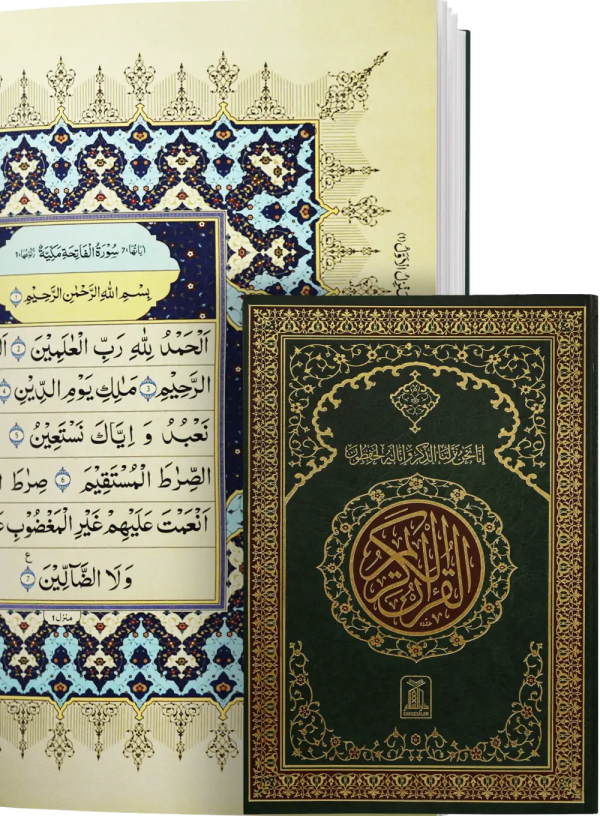 اٰيَاتُهَا ٧ سُوْرَةُ الْفَاتِحَةِ مَكِّيَّةٌ رُكُوْعُهَا ١
بِسْمِ اللّٰهِ الرَّحْمٰنِ الرَّحِيْمِ ١
اَلْحَمْدُ لِلّٰهِ رَبِّ الْعٰلَمِيْنَ ٢
الرَّحِيْمِ ٣ مٰلِكِ يَوْمِ الدِّيْنِ ٤
نَعْبُدُ وَ اِيَّاكَ نَسْتَعِيْنُ ٥
الصِّرَاطَ الْمُسْتَقِيْمَ ٦ صِرَاطَ
اَنْعَمْتَ عَلَيْهِمْ غَيْرِ الْمَغْضُوْبِ
وَلَا الضَّآلِّيْنَ ٧ ع
منزل ١
اِنَّا نَحْنُ نَزَّلْنَا الذِّكْرَ وَاِنَّا لَهٗ لَحٰفِظُوْنَ
القرآن الكريم
دارالسلام
DARUSSALAM